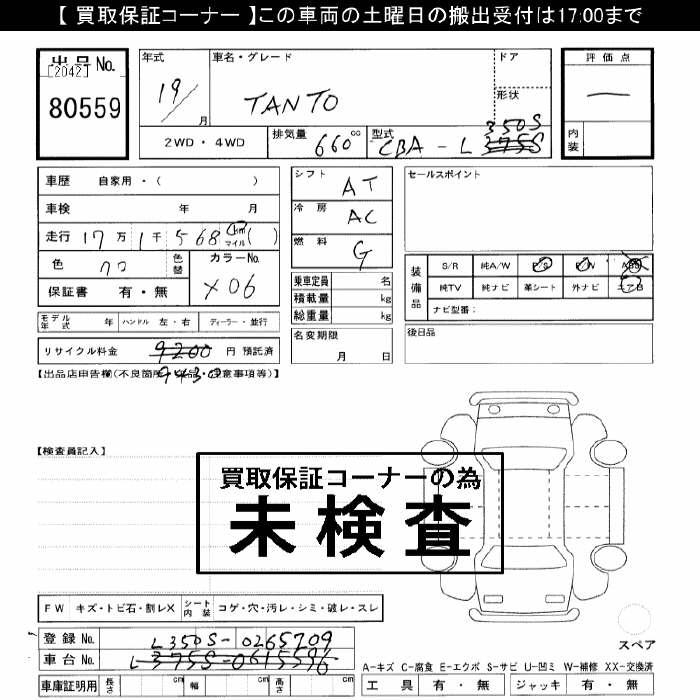 【 買取保証コーナー 】この車両の土曜日の搬出受付は17:00まで
出品No.
[2042]
80559
年式
19/
月
車名・グレード
TANTO
ドア
形状
評価点
内装
2WD・4WD
排気量
660
cc
型式
CBA-L 350S
375S
車歴 自家用・( )
車検 年 月
走行 17万1千568 km マイル ( )
色 クロ
色替
カラーNo.
X06
保証書 有・無
シフト AT
冷房 AC
燃料 G
乗車定員 名
積載量 kg
総重量 kg
セールスポイント
装備品
S/R 純A/W P/S P/W ABS
純TV 純ナビ 革シート 外ナビ エアB
ナビ型番：
モデル年式 年 ハンドル 左・右 ディーラー・並行
名変期限
月 日
後日品
リサイクル料金 9200 円 預託済
9430
【出品店申告欄(不良箇所・欠品・注意事項等)】
【検査員記入】
買取保証コーナーの為
未検査
FW キズ・トビ石・割レX
シート内装 コゲ・穴・汚レ・シミ・破レ・スレ
登録No. L350S-0265709
車台No. L375S-0615596
スペア
A-キズ C-腐食 E-エクボ S-サビ U-凹ミ W-補修 XX-交換済
車庫証明用 長さ cm 幅 cm 高さ cm
工具 有・無 ジャッキ 有・無